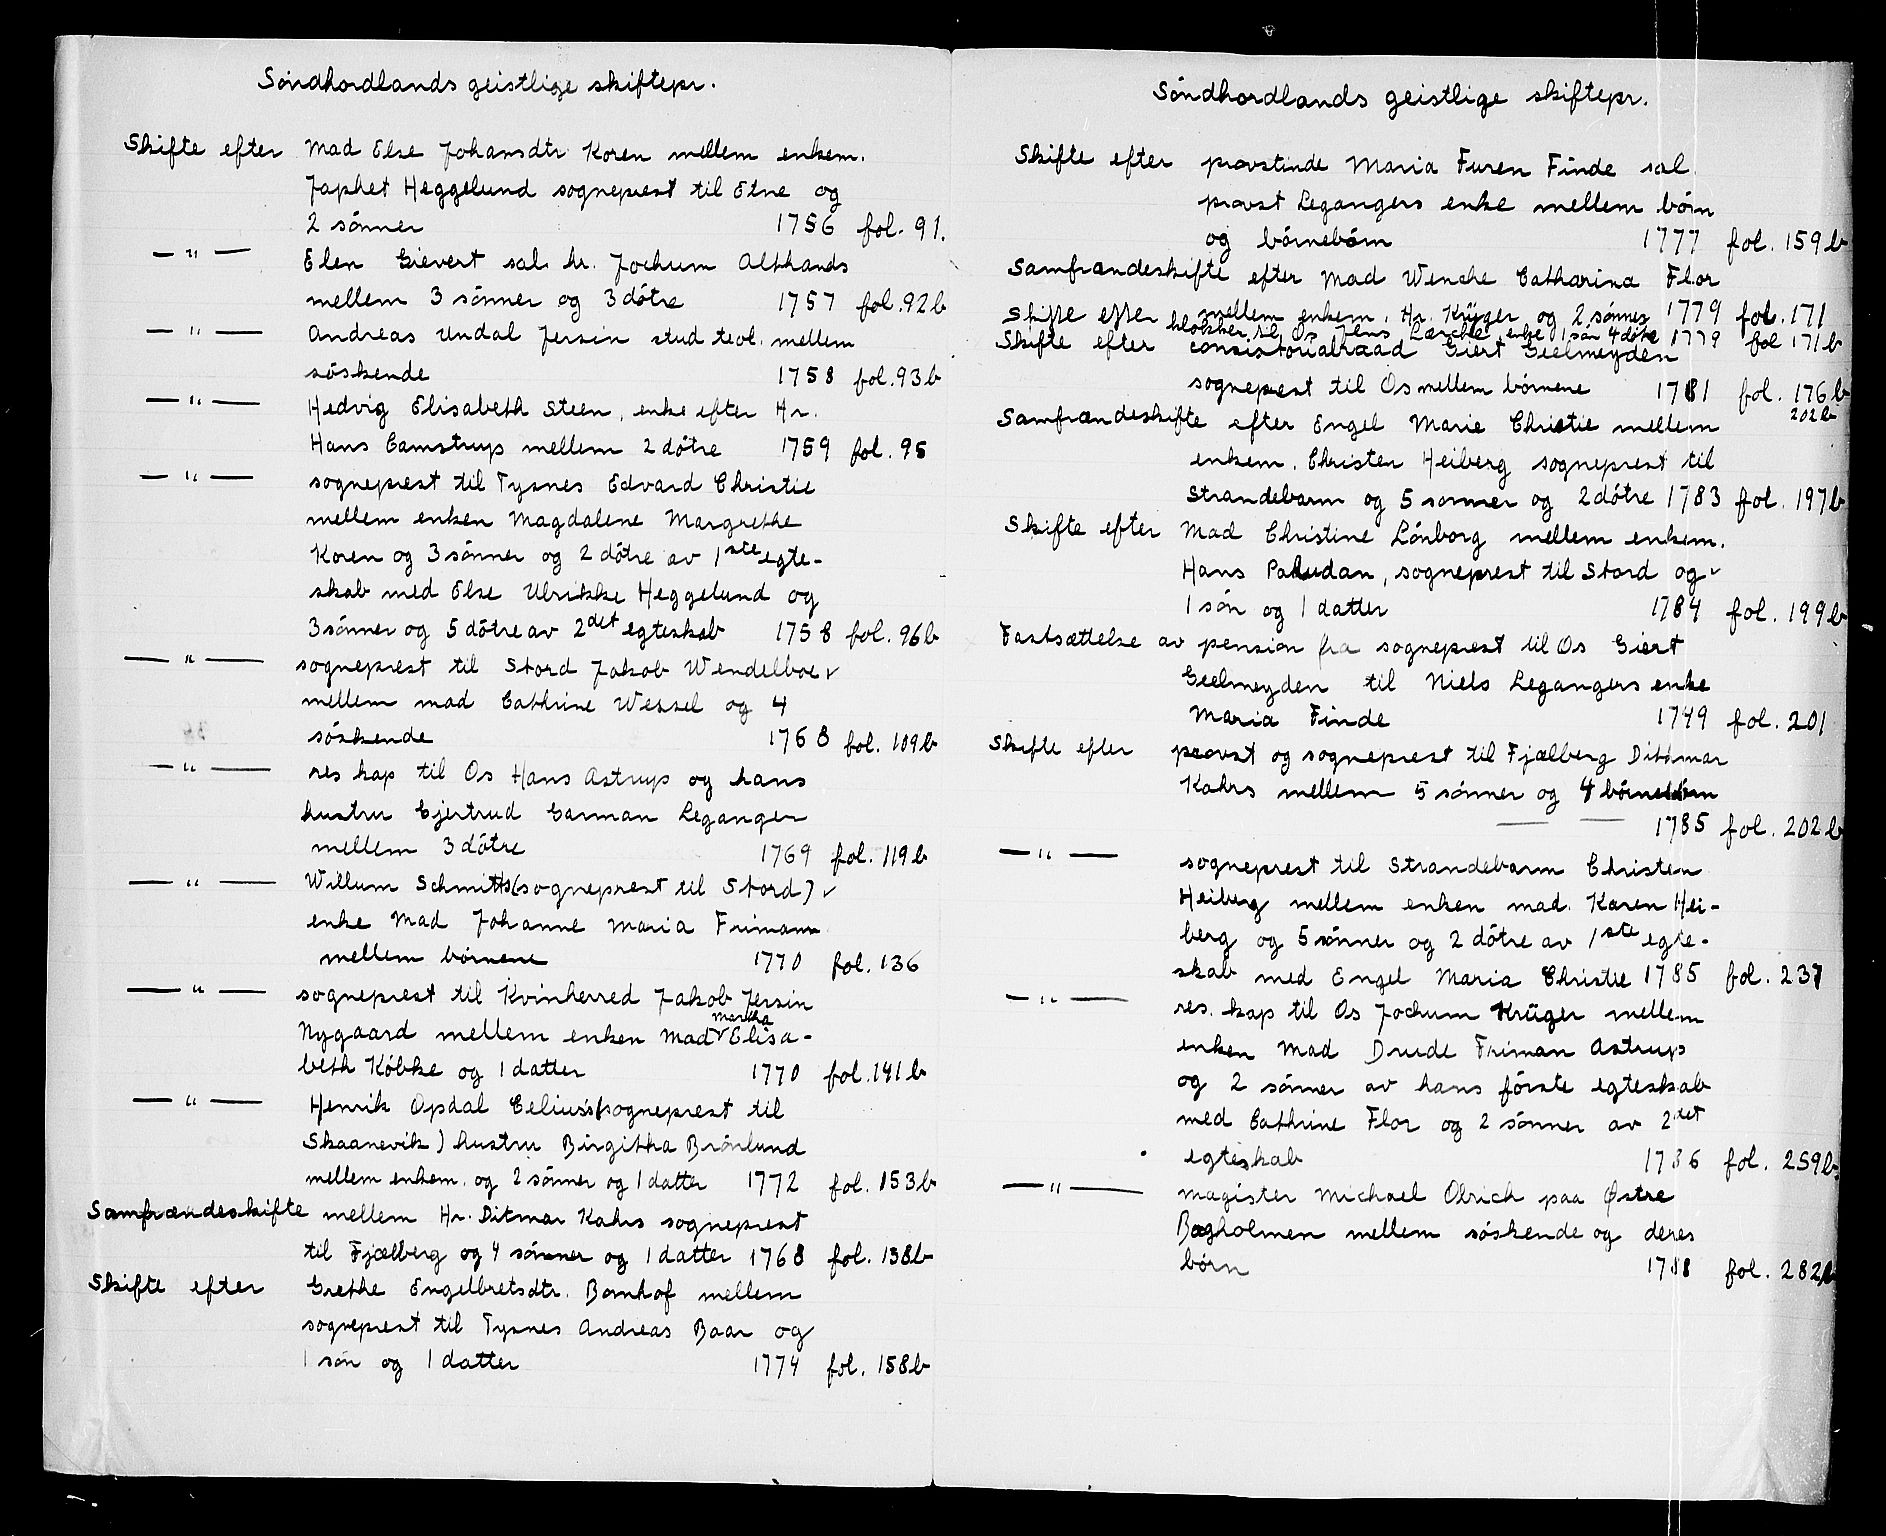 Søndhordlands geistlige skiftepr.
Skifte efter Mad Else Johansdtr Koren mellem enkem.
Japhet Heggelund sogneprest til Etne og
2 sønner 1756 fol. 91.
— " — Elen Gievert sal. hr. Jochum Althands
mellem 3 sønner og 3 døtre 1757 fol. 92 b
— " — Andreas Undal Jersin stud teol. mellem
søskende 1758 fol. 93 b
— " — Hedvig Elisabeth Steen, enke efter Hr.
Hans Camstrup mellem 2 døtre 1759 fol. 95
— " — sogneprest til Tysnes Edvard Christie
mellem enken Magdalene Margrethe
Koren og 3 sønner og 2 døtre av 1ste egte-
skab med Else Ulrikke Heggelund og
3 sønner og 5 døtre av 2det egteskab 1758 fol. 96 b
— " — sogneprest til Stord Jakob Wendelboe
mellem mad Cathrine Wessel og 4
søskende 1768 fol. 109 b
— " — res kap til Os Hans Astrup og hans
hustru Gjertrud Garman Leganger
mellem 3 døtre 1769 fol. 119 b
— " — Willum Schmitts (sogneprest til Stord)
enke Mad Johanne Maria Frimann
mellem børnene 1770 fol. 136
— " — sogneprest til Kvinherred Jakob Jersin
Nygaard mellem enken Mad Martha Elisa-
beth Købke og 1 datter 1770 fol. 141 b
— " — Henrik Opdal Celius's (sogneprest til
Skaanevik) hustru Birgitha Brønlund
mellem enkem. og 2 sønner og 1 datter 1772 fol. 153 b
Samfrændeskifte mellem Hr. Ditmar Kahrs sogneprest
til Fjælberg og 4 sønner og 1 datter 1768 fol. 138 b
Skifte efter Grethe Engelbretsdtr. Bomhof mellem
sogneprest til Tysnes Andreas Baar og
1 søn og 1 datter 1774 fol. 158 b
Søndhordlands geistlige skiftepr.
Skifte efter provstinde Maria Furen Finde sal.
provst Legangers enke mellem børn
og børnebørn 1777 fol. 159 b
Samfrændeskifte efter Mad Wenche Catharina Flor
mellem enkem. Hr. Krüger og 2 sønner 1779 fol. 171
Skifte efter klokker til Os Jens Lærche enke 1 søn 4 døtre 1779 fol 171 b
Skifte efter consistorialraad Giert Geelmeyden
sogneprest til Os mellem børnene 1781 fol. 176 b
202 b
Samfrændeskifte efter Engel Marie Christie mellem
enkem. Christen Heiberg sogneprest til
Strandebarm og 5 sønner og 2 døtre 1783 fol. 197 b
Skifte efter Mad Christine Lønborg mellem enkem.
Hans Paludan, sogneprest til Stord og
1 søn og 1 datter 1784 fol. 199 b
Fastsættelse av pension fra sogneprest til Os Giert
Geelmeyden til Niels Legangers enke
Maria Finde 1749 fol. 201
Skifte efter provst og sogneprest til Fjælberg Dittmar
Kahrs mellem 5 sønner og 4 børnebørn
— — 1785 fol. 202 b
— " — sogneprest til Strandebarm Christen
Heiberg mellem enken mad. Karen Hei-
berg og 5 sønner og 2 døtre av 1ste egte-
skab med Engel Maria Christie 1785 fol. 237
— " — res. kap til Os Jochum Krüger mellem
enken Mad Drude Friman Astrup
og 2 sønner av hans første egteskab
med Cathrine Flor og 2 sønner av 2det
egteskab 1786 fol. 259 b
— " — magister Michael Olrich paa Østre
Bagholmen mellem søskende og deres
børn 1788 fol. 282 b